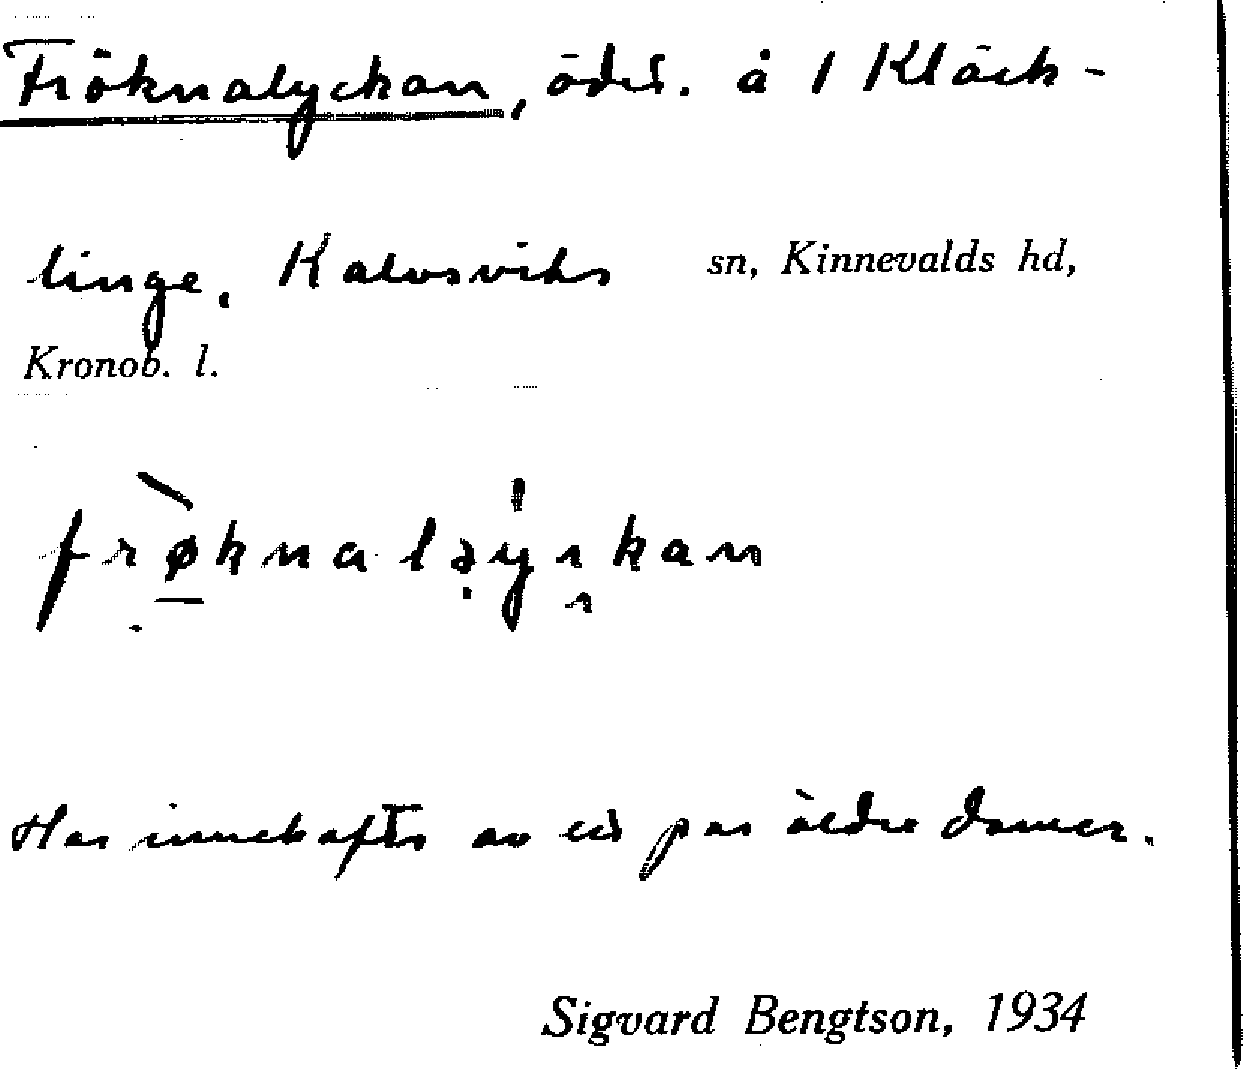 Fröknalyckan, ödel. å 1 Kläck-
linge. Kalvsviks sn, Kinnevalds hd,
Kronob. l.
Har innehafts av ett par äldre damer.
Sigvard Bengtson, 1934